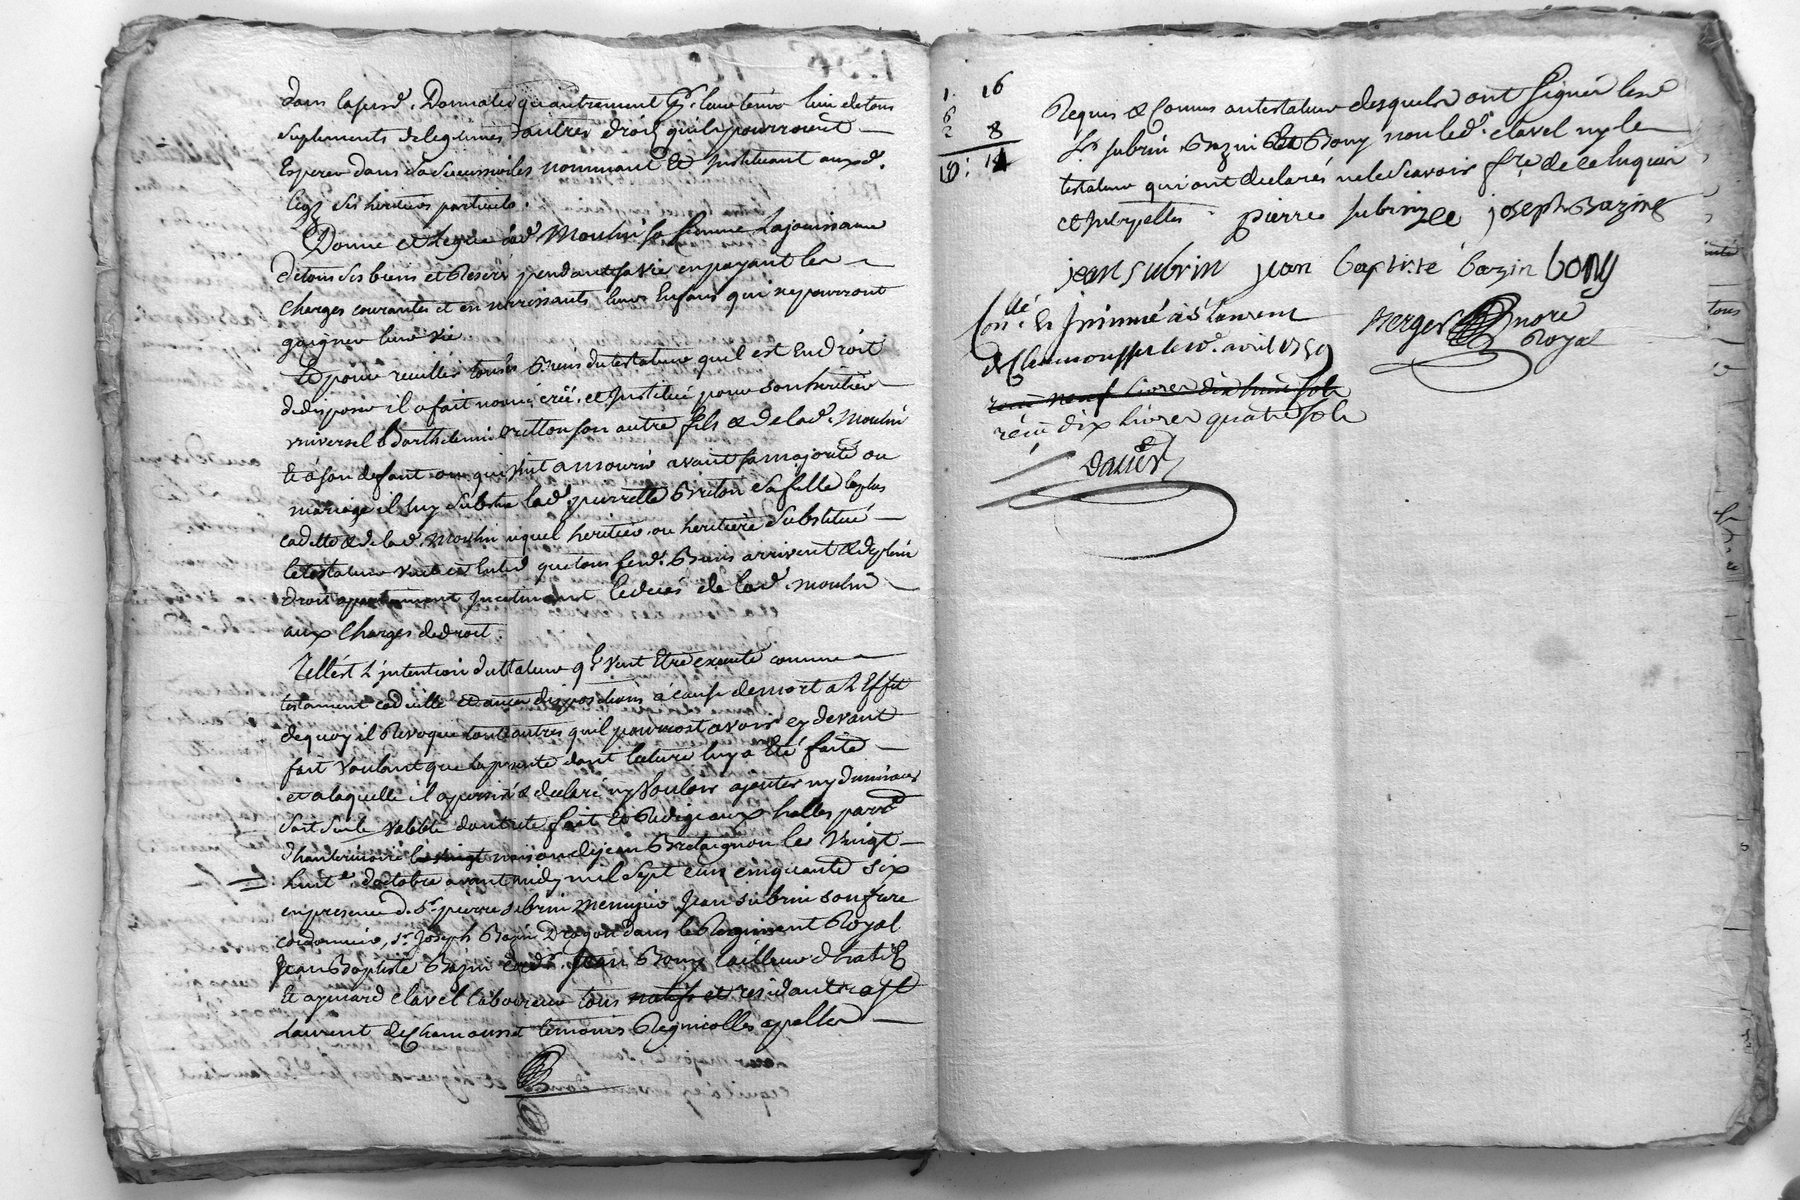 Donnation qu'autrement pr. leur tenir lieu de tous
suplements de legitimes d'autres droits quils pourroient
Esperer dans sa succession les nommant Et Instituant auxd.
legs ses heritiers particuls.
Donne et Legue à lad. Moulin sa femme La jouissance
de tous ses biens et Reserv pendant sa vie en payant les
charges courantes et en nourrissants leurs Enfans qui ne pourront
gaigner leur vie
Et pour recuillir tous les Biens du testateur quil est En droit
de disposer il a fait nommé créé et Institué pour son heritier
vniversel Barthelemi Britton son autre fils & de lad. Moulin
Et à son defaut ou qui vint a mourir avant sa majorité ou
mariage il luy substitue lad. pierrette Briton sa fille la plus
cadette & de lad. Moulin auquel heritier ou heritiere Substitué
le testateur veut et Entend que tous sesd. Biens arrivent & de plein
droit apartiennent Incontinant le deces de lad. moulin
aux Charges de droit.
Telle est L'intention du ttateur ql. veut Etre executé comme
testament codicille Et autres dispositions à cause de mort a L'Effet
de quoy il Revoque tout autres quil pourroit avoir cy devant
fait voulant que la presente dont lecture luy a Eté faite
et a laquelle il a persisté & declaré ny vouloir ajouter ny diminuer
soit seule valable dont acte fait Et Redigé aux halles parr.
d'hauterivoire maison de jean Bretaignon le Vingt
huit e. d'octobre avant midy mil sept cens cinquante six
en presence de Sr. pierre subrin menuisier Jean subrin son frere
cordonnier, Sr. Joseph Bazin Dragon dans le Regiment Royal
Jean Baptiste Bazin cordr. Jean Bony tailleur d'habits
Et aymard clavel laboureur tous natifs et residants a St
Laurent de Chamousset temoins Regnicolles appellés
1. 16
6
2 8
10: 4
Requis & Connus au testateur desquels ont signé lesd
Srs. subrin Bazin Et Bony non led. clavel ny le
testateur qui ont declarés ne le sçavoir fre. de ce Enquis
et Intrpellés. pierre subrin joseph Bazin
jean subrin jean baptiste bazin bony
Conllé. & Insinué à St Laurent Berger nore
de Chamousset le 10e. avril 1759 Royal
reçu neuf livres dix huit sols
reçu dix livres quatre sols